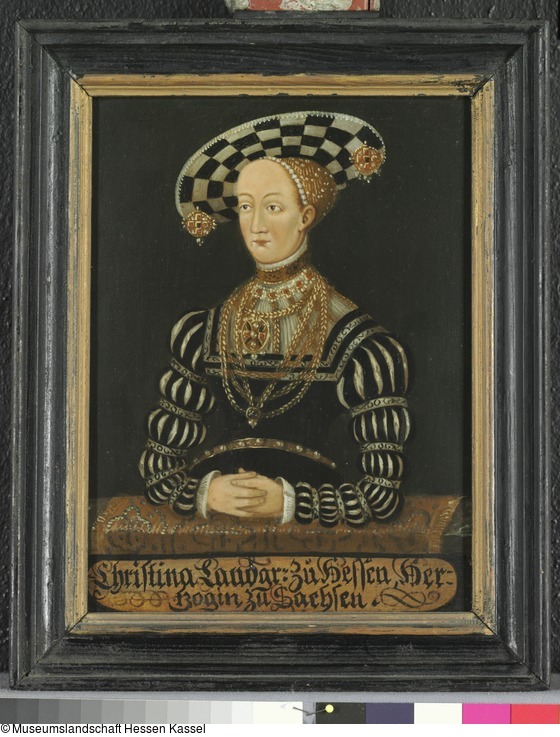 Christina Landgr: zŭ Hessen, Her-
zogin zŭ Sachsen
©Museumslandschaft Hessen Kassel